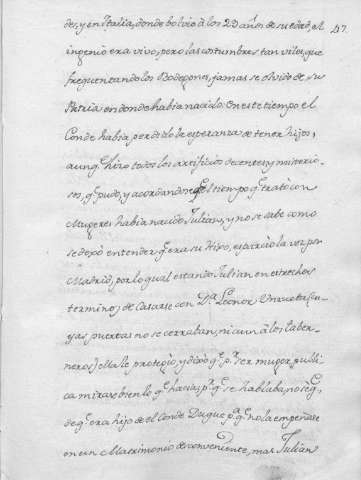 47
des, y en Italia, donde bolvio à los 23 años de su edad, el
ingenio era vivo, pero las costumbres tan viles, que
frequentando los Bodegones, jamas se olvido de su
Patria en donde había nacido: En este tiempo el
Conde habia perdido la esperanza de tener hijos,
aunq.e hizo todos los artificios decentes, y misterio-
sos, q.e pudo, y acordandose q.e el tiempo q.e trató con
Mugeres habia nacido Julian, y no se sabe como
se dexò entender q.e era su Hixo, esparciò la voz por
Madrid, por lo qual estando Julian en estrechos
terminos de Casarse con D.a Leonor Unzueta cu-
yas puertas no se cerraban, ni aun à los taber-
neros
le protegio, y dixo q.e p.r ser muger publi-
ca mirase bien lo q.e hacia, p.r q.e se hablaba, no se q.e,
de q.e era hijo de el Conde Duque p.a q.e no la empeñase
en un Matrimonio desconveniente, mas Julian